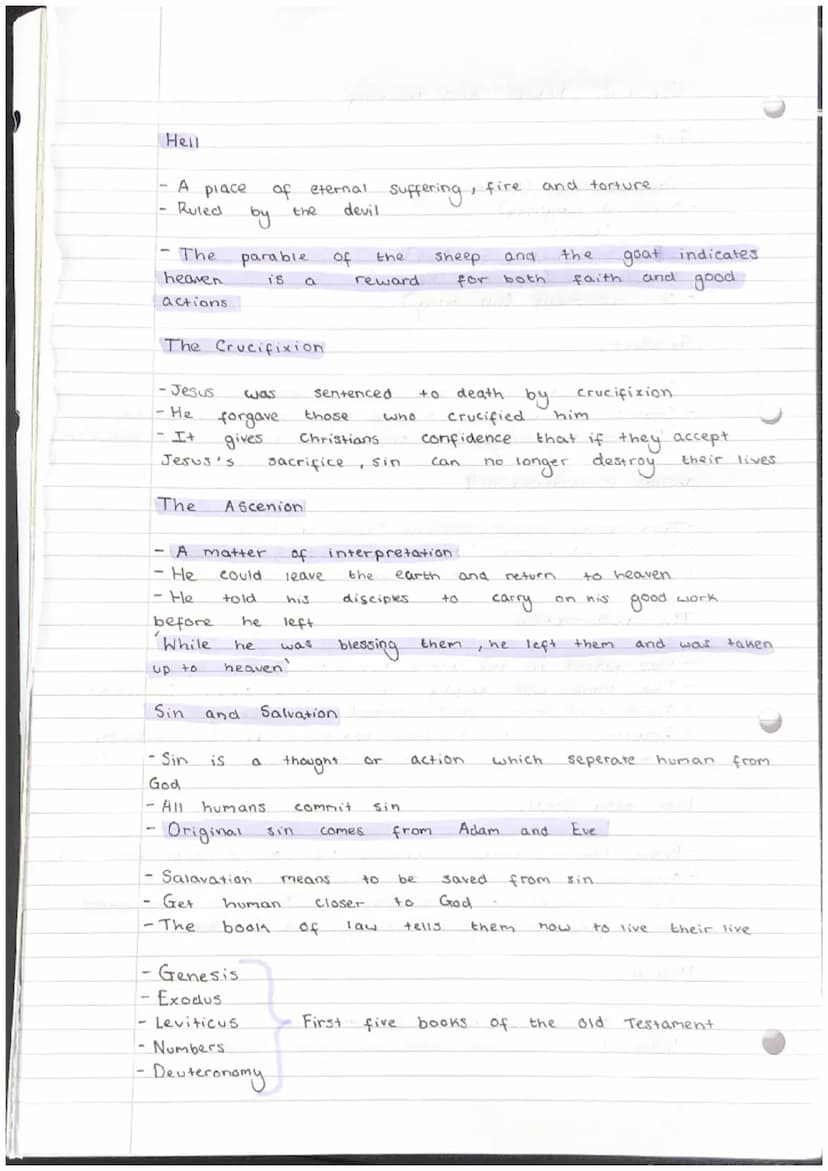 Hell
- A place of eternal suffering, fire and torture
- Ruled by the devil
- The parable of the sheep and the goat indicates
heaven is a reward for both faith and good
actions
The Crucifixion
- Jesus was sentenced to death by crucifixion
- He forgave those who crucified him
- It gives Christians confidence that if they accept
Jesus's sacrifice, sin can no longer destroy their lives
The Ascenion
- A matter of interpretation
- He could leave the earth and return to heaven
- He told his disciples to carry on his good work
before he left
'While he was blessing them, he left them and was taken
up to heaven'
Sin and Salvation
- Sin is a thought or action which seperate human from
God
- All humans commit sin
- Original sin comes from Adam and Eve
- Salavation means to be saved from sin
- Get human closer to God
- The book of law tells them how to live their live
- Genesis
- Exodus
- Leviticus First five books of the Old Testament
- Numbers
- Deuteronomy